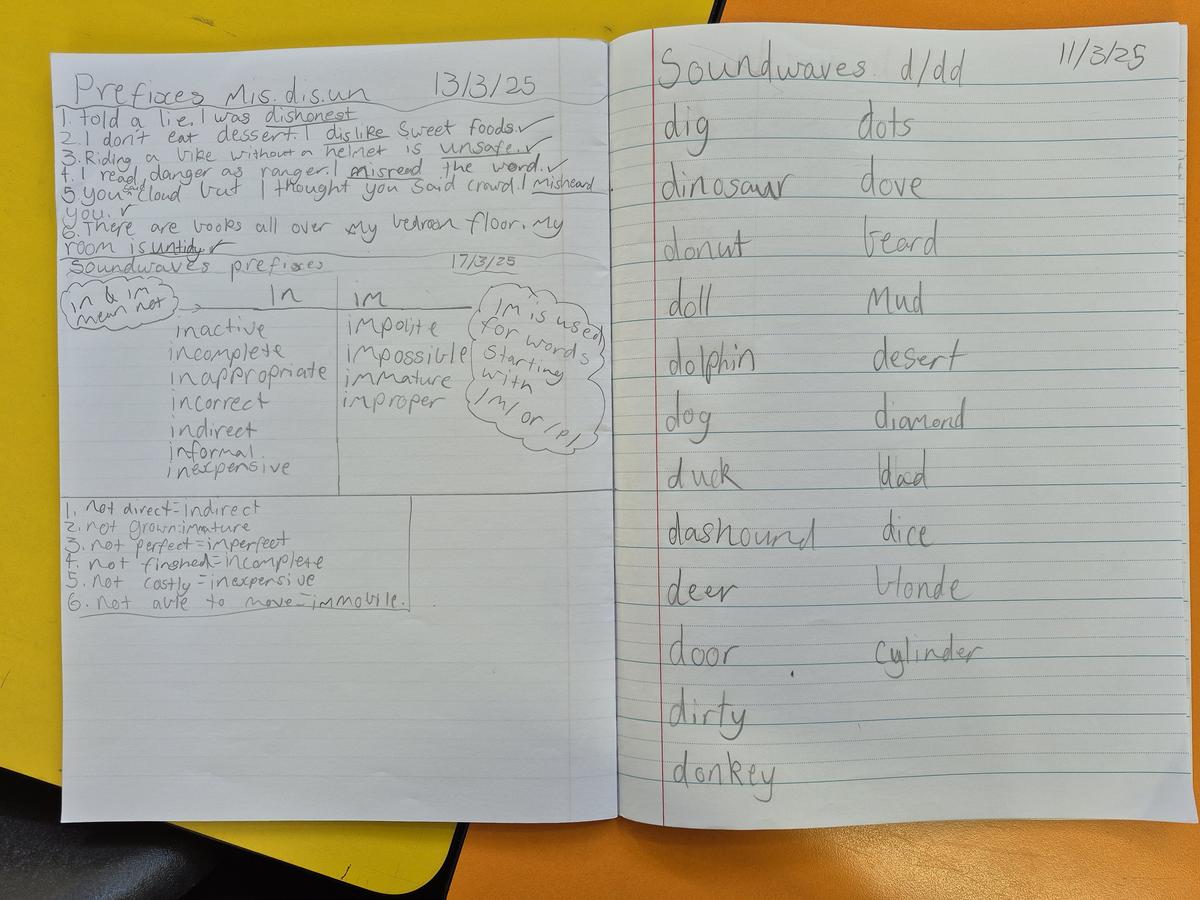 Prefixes Mis.dis.un 13/3/25
1. told a lie. I was dishonest
2. I don't eat dessert. I dislike sweet foods. ✓
3. Riding a bike without a helmet is unsafe. ✓
4. I read danger as ranger. I misread the word. ✓
5. you said cloud but I thought you said crowd. I misheard
you. ✓
6. There are books all over my bedroom floor. My
room is untidy ✓
Soundwaves prefixes 17/3/25
in & im
mean not
In
im
inactive
incomplete
inappropriate
incorrect
indirect
informal.
inexpensive
impolite
impossible
immature
improper
IM is used
for words
starting
with
/m/ or /p/
1. not direct=Indirect
2. not grown=immature
3. not perfect=imperfect
4. not finshed=incomplete
5. not costly=inexpensive
6. not able to move=immobile.
Soundwaves d/dd 11/3/25
dig
dinosaur
donut
doll
dolphin
dog
duck
dashound
deer
door
dirty
donkey
dots
dove
beard
Mud
desert
diamond
dad
dice
blonde
cylinder